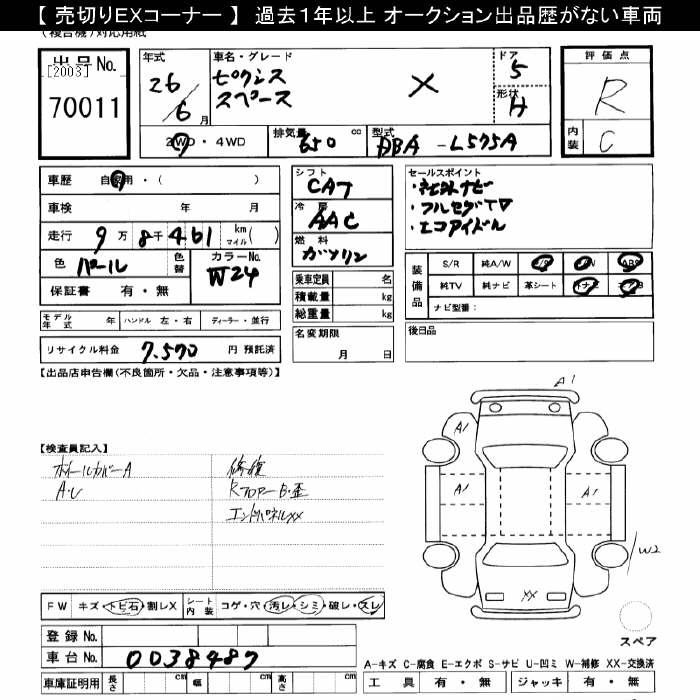 【 売切りEXコーナー 】 過去1年以上 オークション出品歴がない車両
(複合機)対応用紙
出品No.
[2003]
70011
年式
26/6月
車名・グレード
ピクシス
スペース
×
ドア
5
形状
H
評価点
R
内装
C
2WD・4WD
排気量
650 cc
型式
DBA - L575A
車歴 自家用・( )
車検 年 月
走行 9万8千461 km マイル( )
色 パール 色替 カラーNo. W24
保証書 有・無
シフト
CA7
冷房
AAC
燃料
ガソリン
乗車定員 名
積載量 kg
総重量 kg
セールスポイント
・社外ナビ
・フルセグTV
・エコアイドル
装備品
S/R 純A/W P/S P/W ABS
純TV 純ナビ 革シート
ナビ型番:
モデル年式 年 ハンドル 左・右 ディーラー・並行
名変期限
月 日
後日品
リサイクル料金 7.570 円 預託済
【出品店申告欄(不良箇所・欠品・注意事項等)】
【検査員記入】
ホイールカバーA
A・U
修復
RフロアーB・歪
エンドパネルXX
A1
A1
A1
A1
W2
XX
FW キズ・トビ石・割レX シート内装 コゲ・穴・汚レ・シミ・破レ・スレ
スペア
登録No.
車台No. 0038487
車庫証明用 長さ cm 幅 cm 高さ cm
A-キズ C-腐食 E-エクボ S-サビ U-凹ミ W-補修 XX-交換済
工具 有・無 ジャッキ 有・無